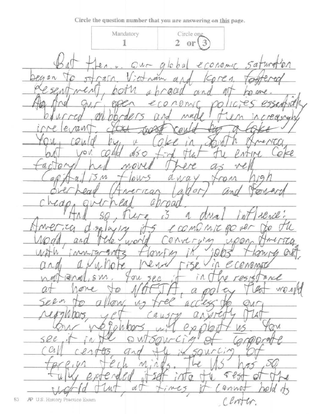 Circle the question number that you are answering on this page.
Mandatory Circle one
1 2 or 3
But then.. our global economic saturation
began to strain. Vietnam and Korea fostered
resentment, both abroad and at home.
And our open economic policies essentially
blurred borders and made them increasingly
irrelevant. You could buy a Coke
You could buy a Coke in South America,
but you could also find that the entire Coke
factory had moved there as well.
Capitalism flows away from high
overhead (American labor) and toward
cheap overhead abroad.
And so, here is a dual influence:
America displaying its economic power to the
world, and the world converging upon America,
with immigrants flowing in, jobs flowing out,
and a whole new rise in economic
nationalism. You see it in the resistance
at home to NAFTA, a policy that would
seem to allow us free access to our
neighbors, yet causes anxiety that
our neighbors will exploit us. You
see it in the outsourcing of corporate
call centers and the sourcing of
foreign tech minds. The US has so
fully extended itself into the rest of the
world that, at times, it cannot hold its
center.
AP U.S. History Practice Exam